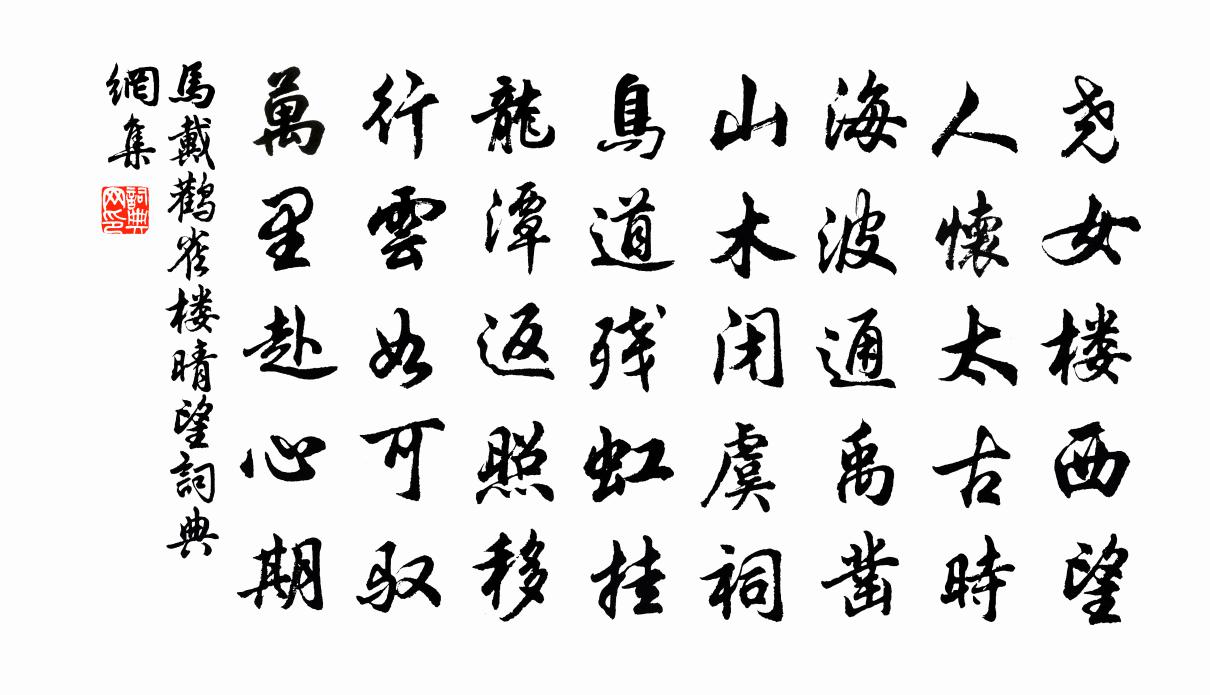 尧女楼西望
人懷太古時
海波通禹凿
山木闭虞祠
鳥道残虹挂
龍潭返照移
行雲如可驭
萬里赴心期
馬戴鹳雀楼晴望詞典
網集
詞典网印